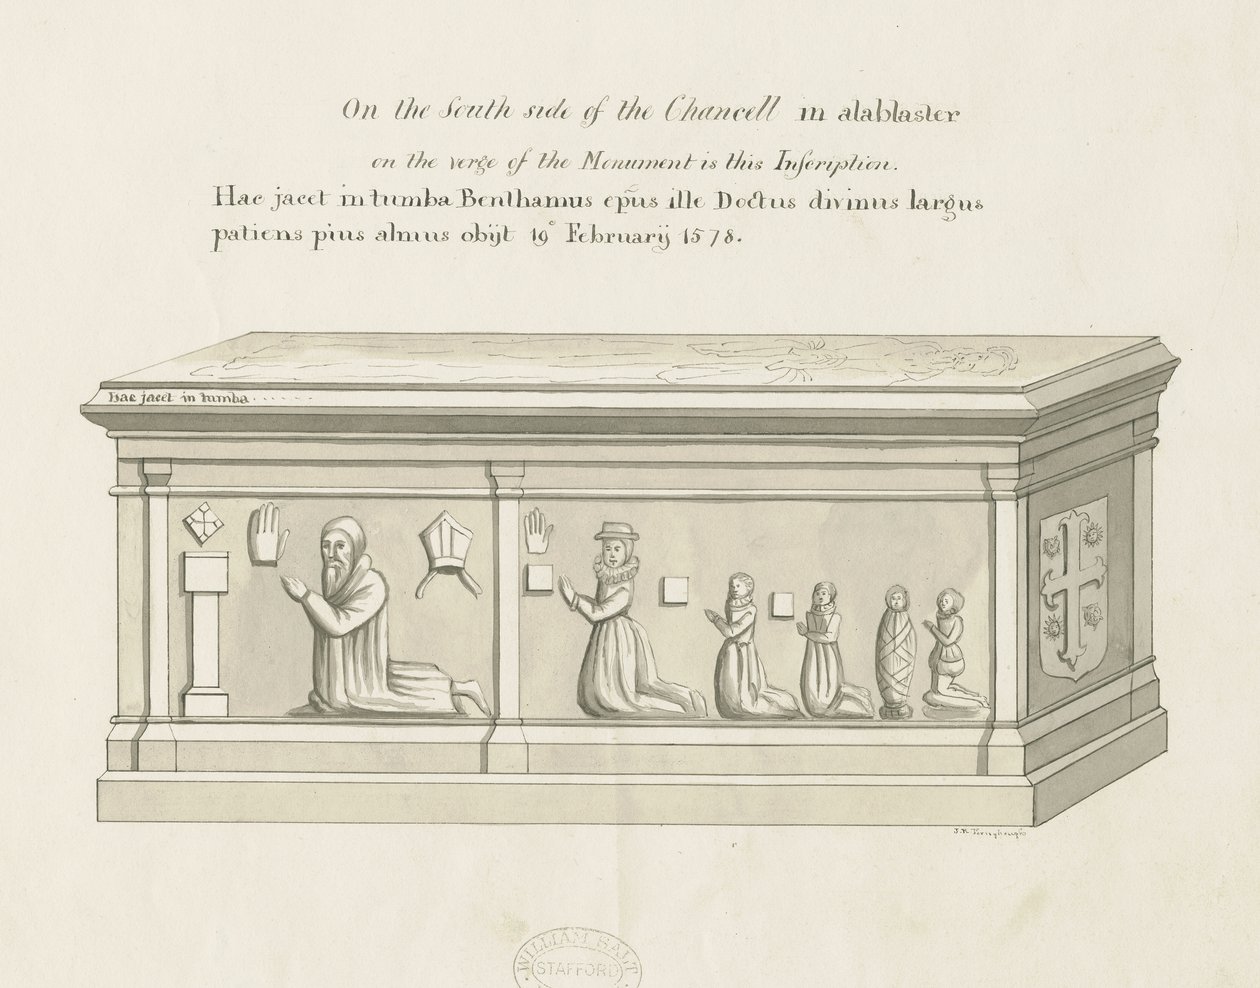 On the South side of the Chancell in alablaster
on the verge of the Monument is this Inscription.
Hac jacet in tumba Benthamus ep̃us ille Doctus divinus largus
patiens pius almus obijt 19° Februarij 1578.
Hac jacet in tumba . . . . . .
WILLIAM SALT
STAFFORD